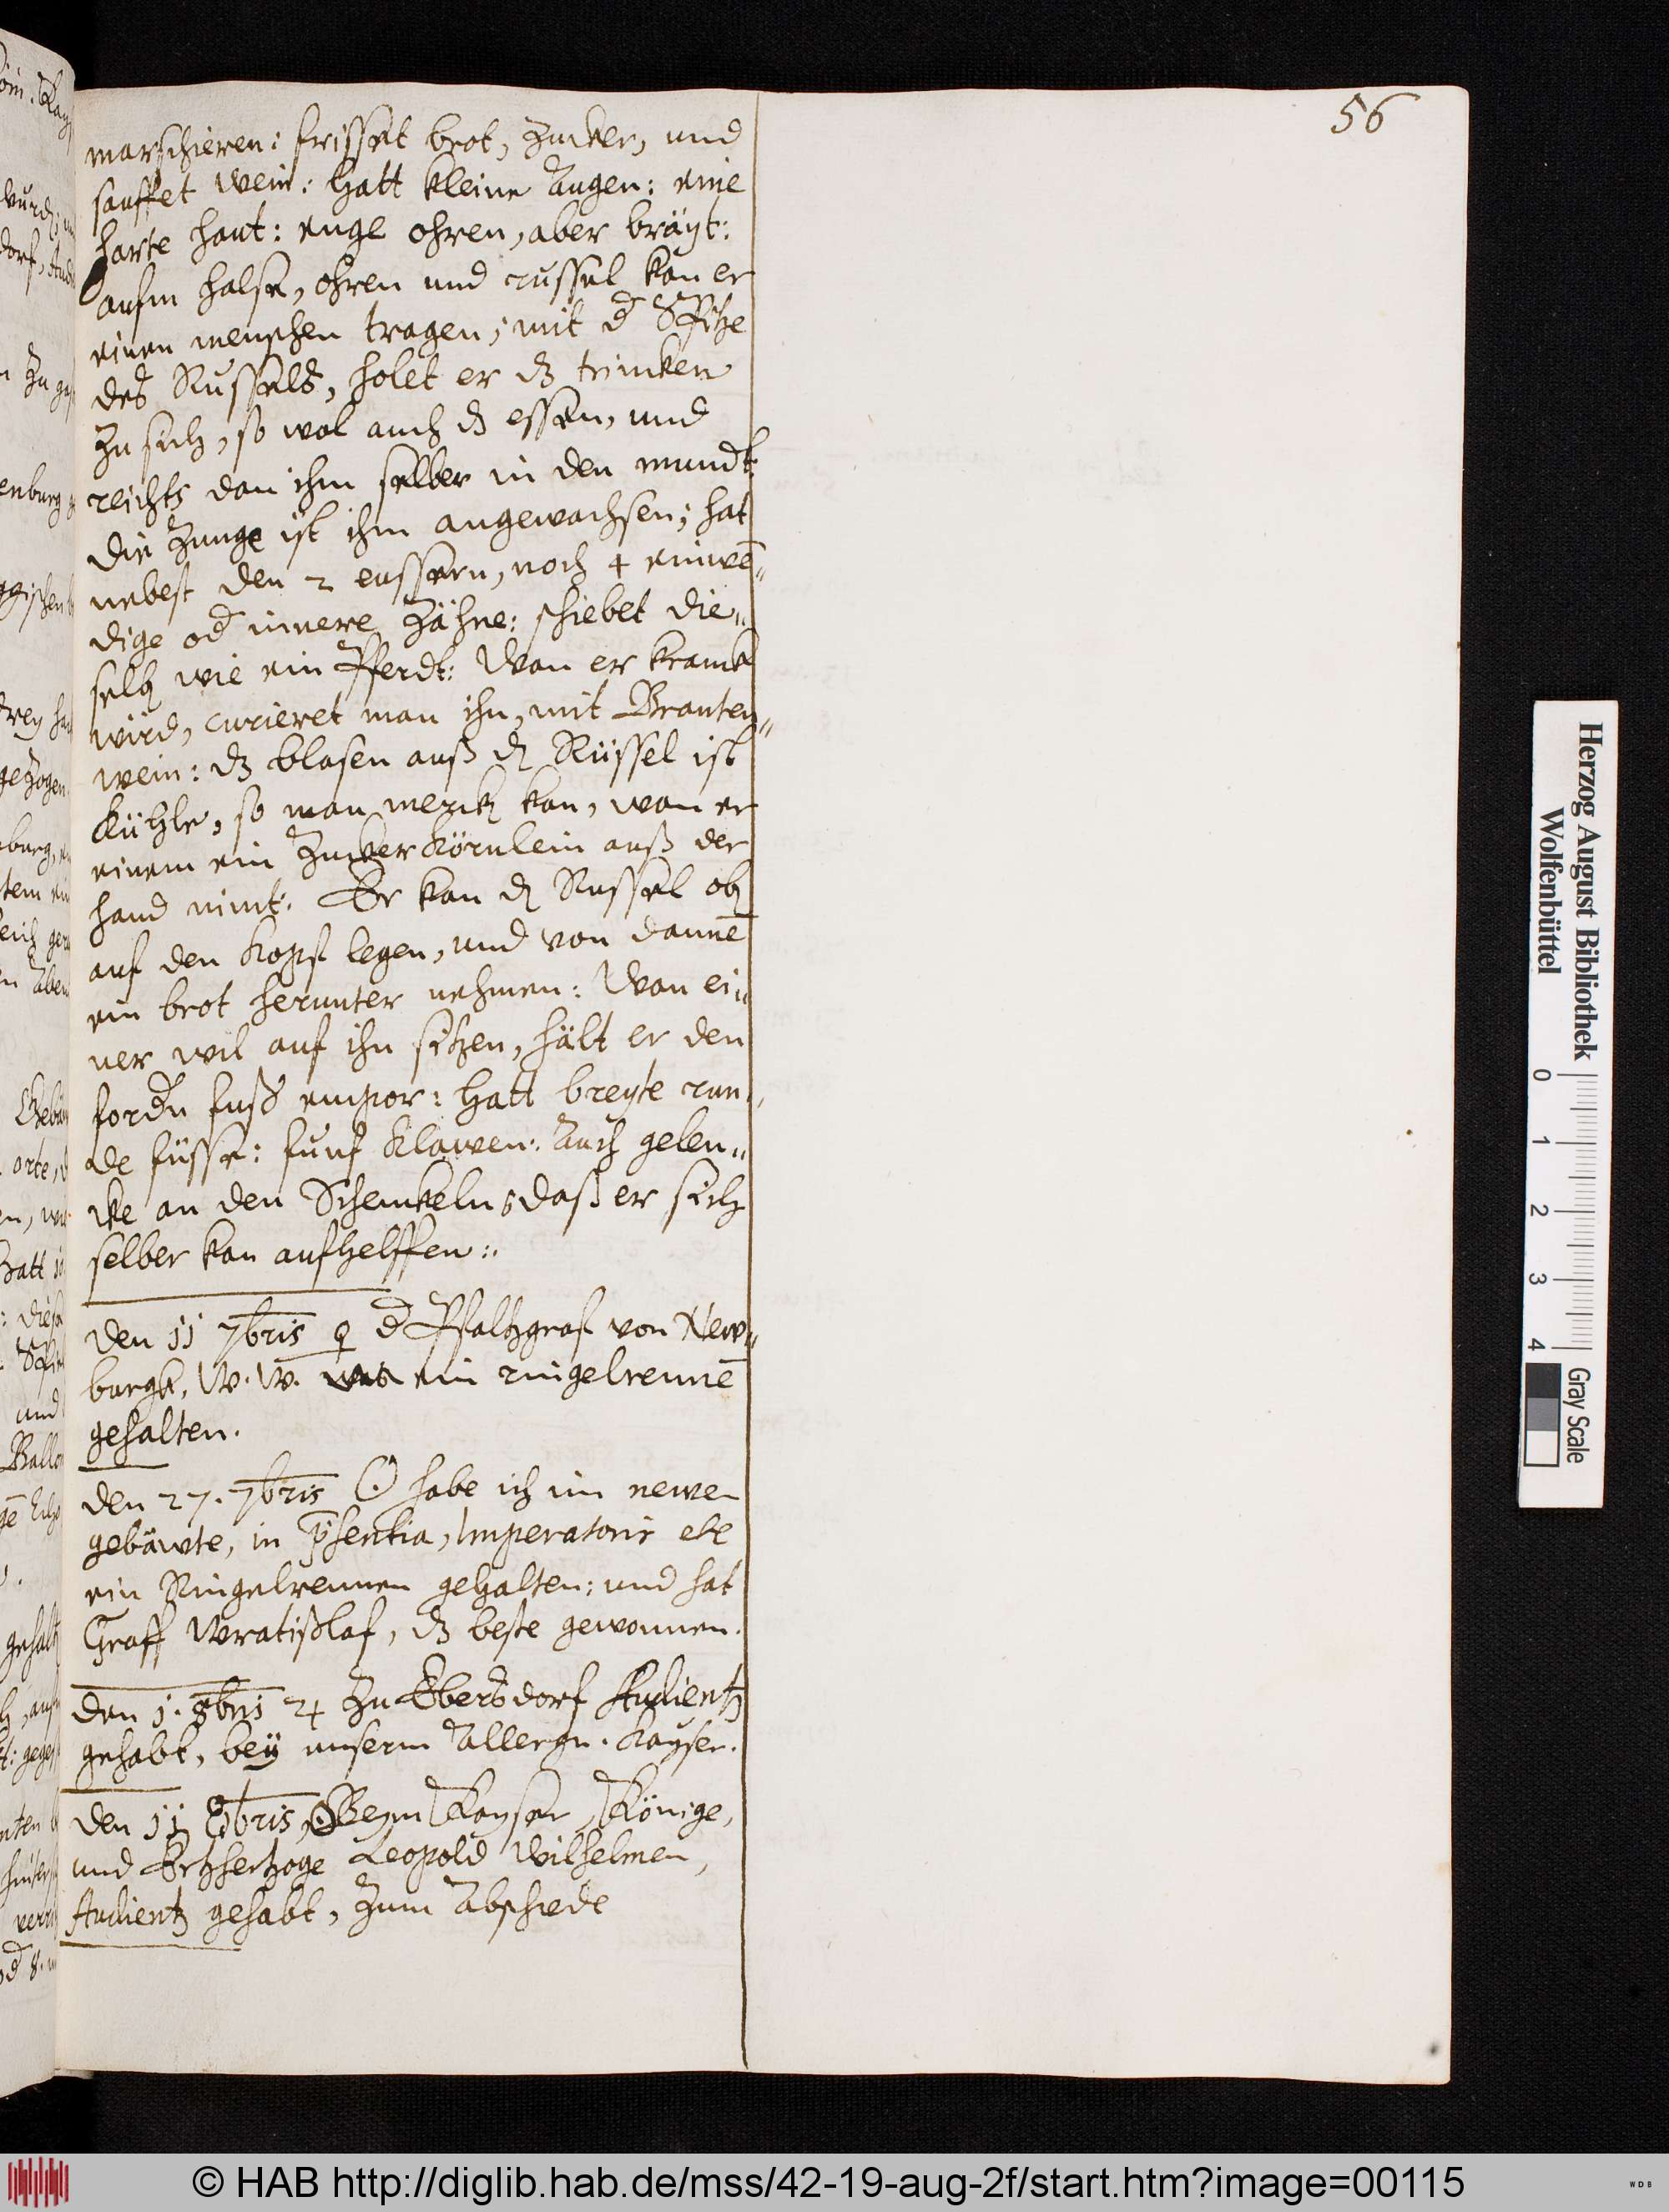 56
marschieren: frisset brot, Zucker, und
sauffet wein: hatt kleine Augen: eine
harte haut: enge ohren, aber bräyt:
aufm halse, ohren und russel kan er
einen menschen tragen; mit d Spitze
des Russels, holet er dz trincken
zu sich, so wol auch dz essen, und
reichts dan ihm selber in den mundt:
die Zunge ist ihm angewachsen; hat
nebest den 2 eussern, noch 4 inwē„
dige od innere Zähne: schiebet die„
selb wie ein Pferdt: Wan er kranck
wird, curieret man ihn, mit Branten„
wein: dz blasen auß dē Rüssel ist
kühle, so man merck kan, wan er
einem ein Zucker Körnlein auß der
hand nimt: Er kan dē Russel ob
auf den Kopf legen, und von dannē
ein brot herunter nehmen: Wan ei„
ner wil auf ihn sitzen, hält er den
fordn fuß empor: hatt breyte run„
de füsse: funf Klawen: Auch gelen„
cke an den Schenckeln, daß er sich
selber kan aufhelffen:.
Den 11 7bris ♀ d Pfaltzgraf von New„
burgk, W. W. ein ringelrennē
gehalten.
Den 27. 7bris ☉ habe ich im newen
gebäwte, in psentia, Imperatoris etc
ein Ringelrennen gehalten: und hat
Graff Wratißlaf, dz beste gewonnen.
Den 1. 8bris ♃ Zu Ebersdorf Audientz
gehabt, bey unserm Allergn. Kayser.
Den 11 8bris, ☉ Beym Kayser, Könige,
und Ertzhertzoge Leopold Wilhelmen,
Audientz gehabt, zum Abschiede
Herzog August Bibliothek
Wolfenbüttel
0 1 2 3 4
Gray Scale
© HAB http://diglib.hab.de/mss/42-19-aug-2f/start.htm?image=00115
WDB